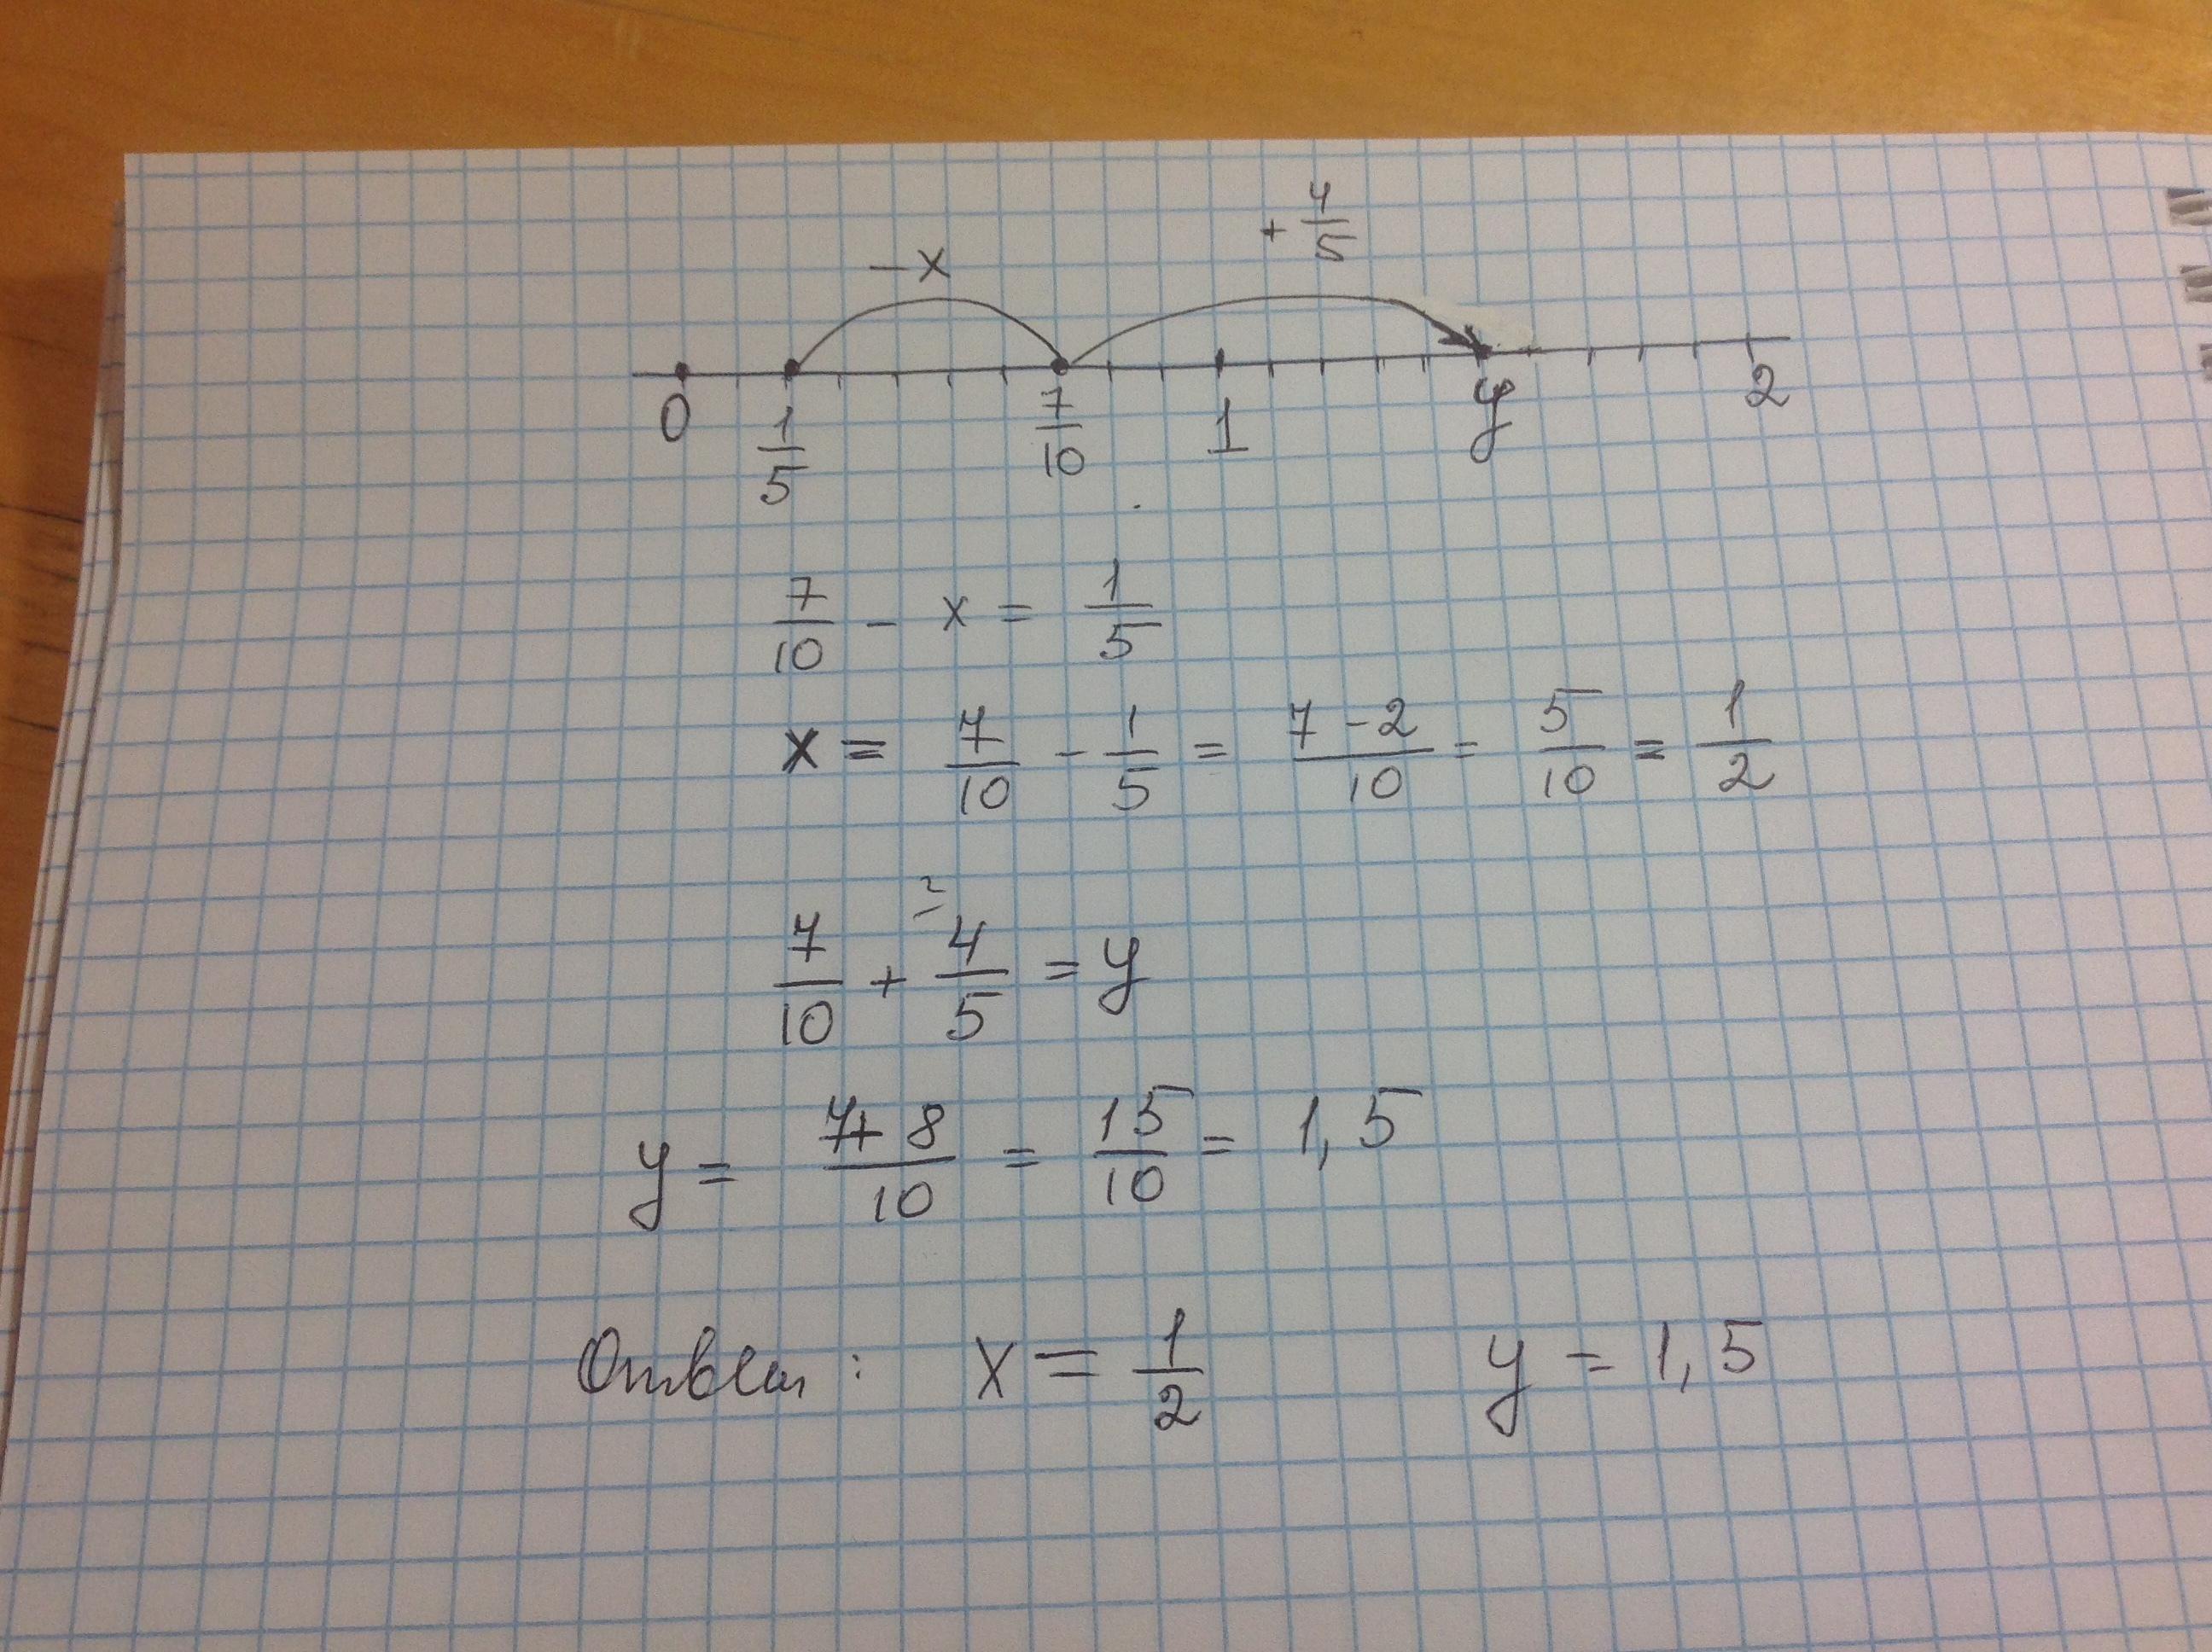 -x + 4/5
0 1/5 7/10 1 y 2
7/10 - x = 1/5
x = 7/10 - 1/5 = (7-2)/10 = 5/10 = 1/2
7/10 + 4/5 ²⁄ = y
y = (7+8)/10 = 15/10 = 1,5
Ответ: x = 1/2 y = 1,5